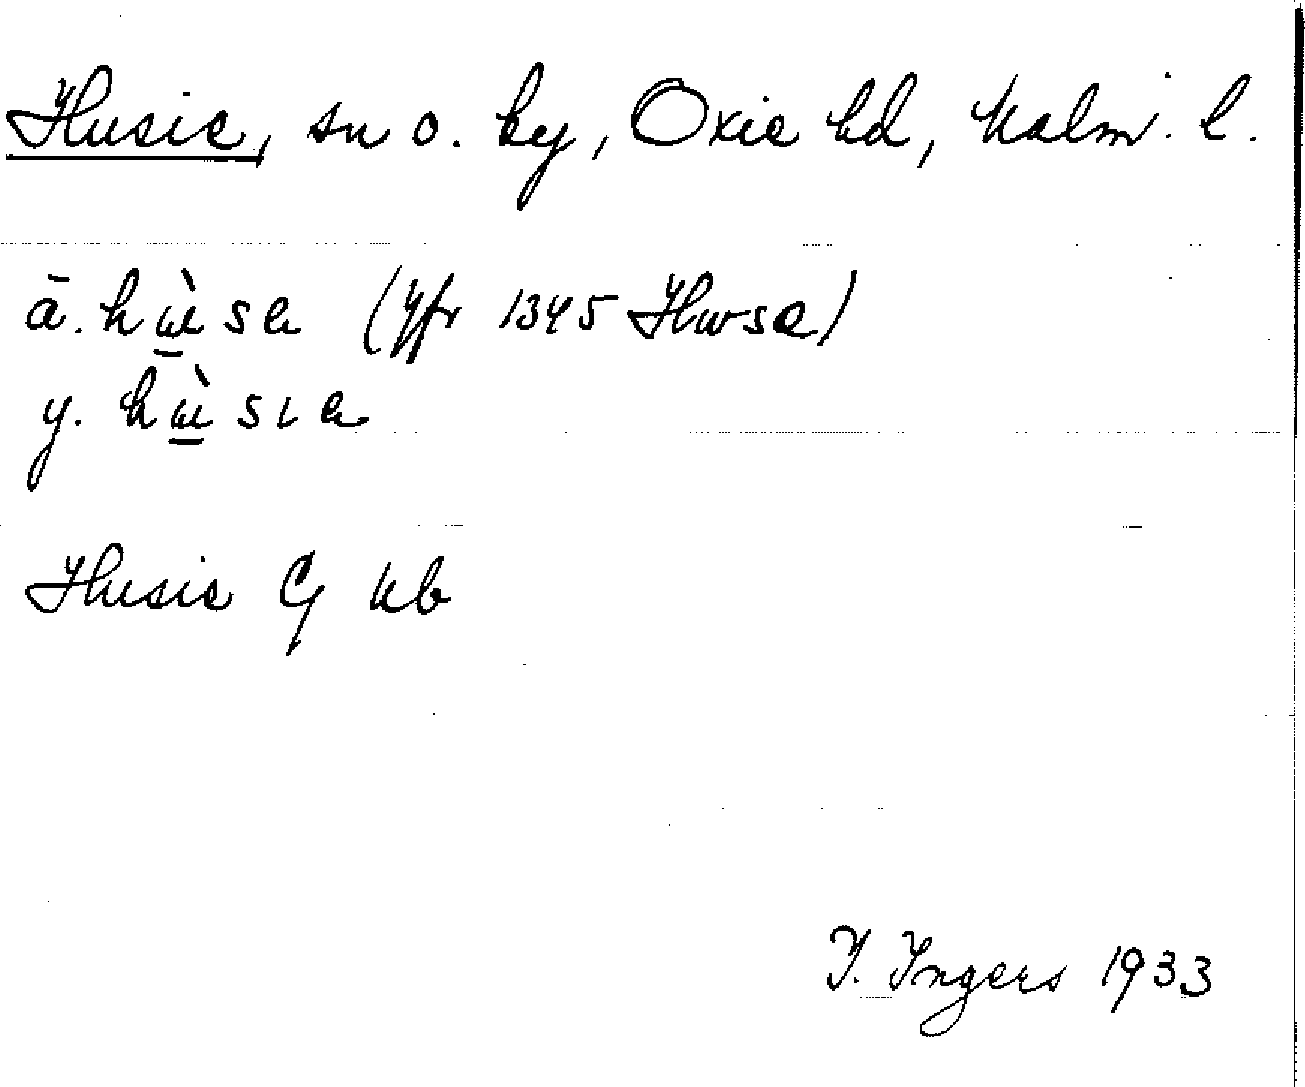 Husie, sn o. by, Oxie hd, Malm. l.
ā. hɯ̱̀sa (Jfr 1345 Hwse)
y. hɯ̱̀sıa
Husie Gj kb
I. Ingers 1933